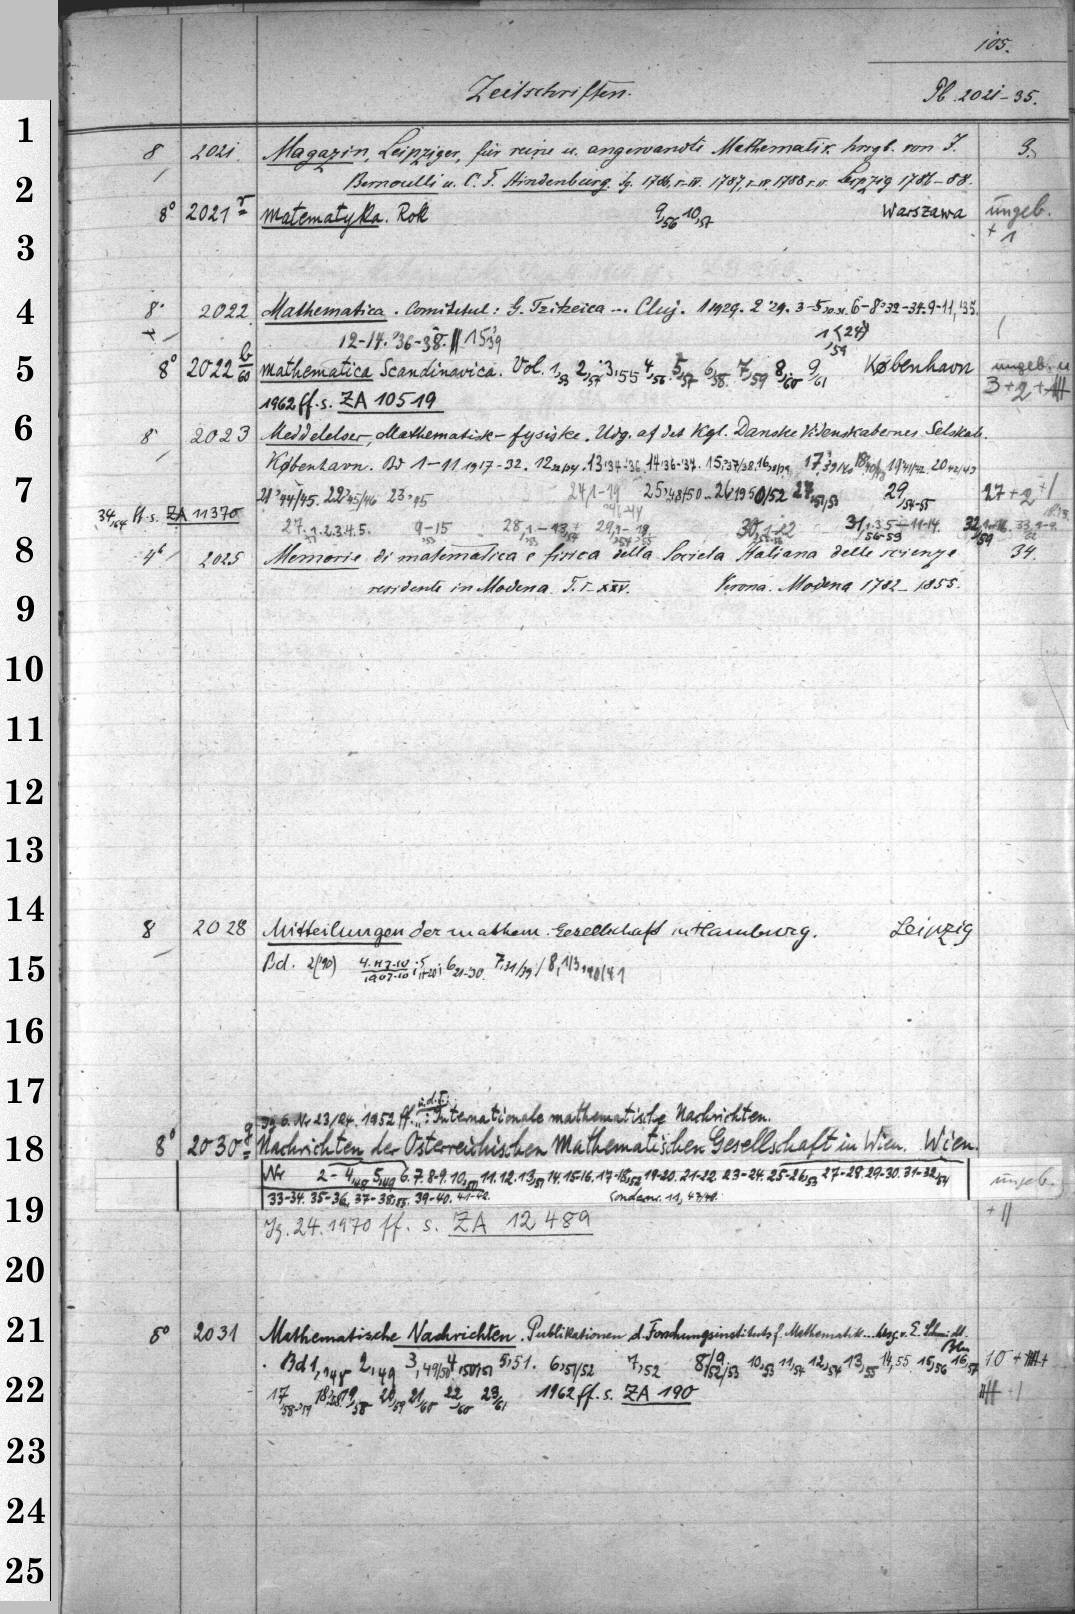 105.
Zeitschriften. Pb. 2021-35.
1
8 2021. Magazin, Leipziger, für reine u. angewandte Mathematik hrsgb. von J. 3.
2
Bernoulli u. C. F. Hindenburg. Jg. 1786, I-IV. 1787, I-IV. 1788 I-II. Leipzig 1786-88.
8° 2021 Matematyka. Rok 9,56 10,57 Warszawa ungeb.
+ 1
3
4
8° 2022 Mathematica. Comitetul: G. Tzitzeica ... Cluj. 1 1929. 2 '29. 3-5 6-8 '32-34. 9-11, '35.
12-14. '36-38. 15 '39 1 (24) ,59
5
8° 2022 b/60 Mathematica Scandinavica. Vol. 1,53 2,54 3,55 4,56 5,57 6,58 7,59 8,60 9/61 København ungeb. u
1962 ff. s. ZA 10519 3+2+
6
8° 2023 Meddelelser, Mathematisk-fysiske. Udg. af det Kgl. Danske Videnskabernes Selskab.
København. Bd 1-11 1917-32. 12 13 '34-'36 14 '36-'37 15,'37/38. 16 17,'39/40 18 19 '41/42. 20 '42/43
7
21, '44/45. 22, '45/46 23, '45 24,1-19 25,'48/50 26 1950/52 27,51/53 29,54-55 27+2+1
34/64 ff. s. ZA 11370
27. 1.2.3.4.5. 9-15 28,1-13 29,1-18 30,1-12 31, 1.3.5-11-14. 56-59 32
8
4° 2025 Memorie di matematica e fisica della Società Italiana delle scienze 34.
9
residente in Modena. T. I-XXV. Verona. Modena 1782-1855.
10
11
12
13
14
8 2028 Mitteilungen der mathem. Gesellschaft in Hamburg. Leipzig
15
Bd. 2('90) 4. H 7-10 1907-10; 5; 6 21-30. 7, 31/39 / 8, 1/3, 1940/41
16
17
Jg 6. Nr 23/24. 1952 ff. u.d.T.: Internationale mathematische Nachrichten.
18
8° 2030 g Nachrichten der Österreichischen Mathematischen Gesellschaft in Wien. Wien.
Nr 2-4,48 5,49 6.7.8-9.10,50 11.12.13,51 14.15-16.17-18,52 19-20.21-22. 23-24.25-26,53 27-28.29-30.31-32,54 ungeb.
19
33-34. 35-36. 37-38,55. 39-40. 41-42. Sondernr. 11, 47/48. + 11
Jg. 24. 1970 ff. s. ZA 12489
20
21
8° 2031 Mathematische Nachrichten. Publikationen d. Forschungsinstituts f. Mathematik... hrsg. v. E. Schmidt. Bln
Bd 1,1948 2,49 3,49/50 4,50/51 5,51. 6,51/52 7,52 8/9,52/53 10,53 11,54 12,54 13,55 14,55 15,56 16,57 10 +
22
17,58 18,58 19,58 20,59 21/60 22/60 23/61 1962 ff. s. ZA 190
23
24
25